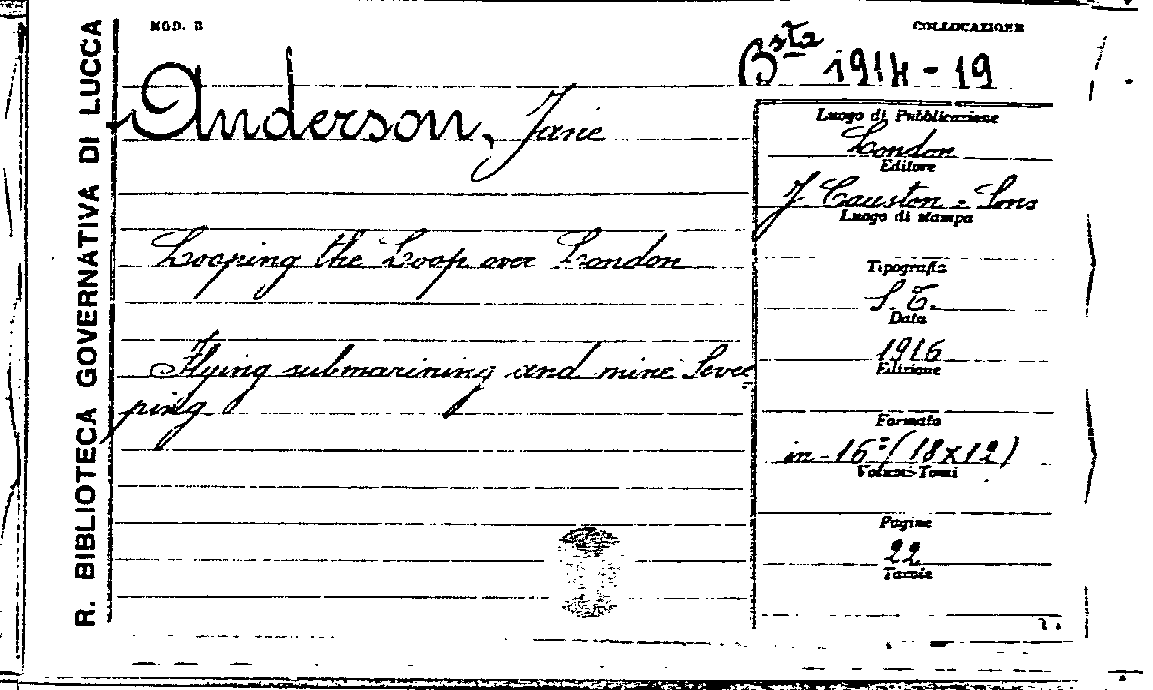 R. BIBLIOTECA GOVERNATIVA DI LUCCA
MOD. B
COLLOCAZIONE
Bsta 1914-19
Anderson, Jane
Looping the Loop over London
Flying submarining and mine Sevee
ping
Luogo di Pubblicazione
London
Editore
J. Causton - Sons
Luogo di stampa
Tipografia
S.T.
Data
1916
Edizione
Formato
in-16° (18x12)
Volumi-Tomi
Pagine
22
Tavole